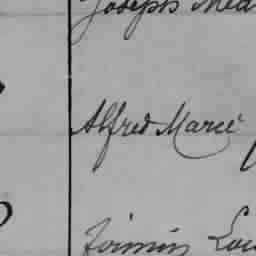 Joseph Med
Alfred Marcé
Firmin Lou